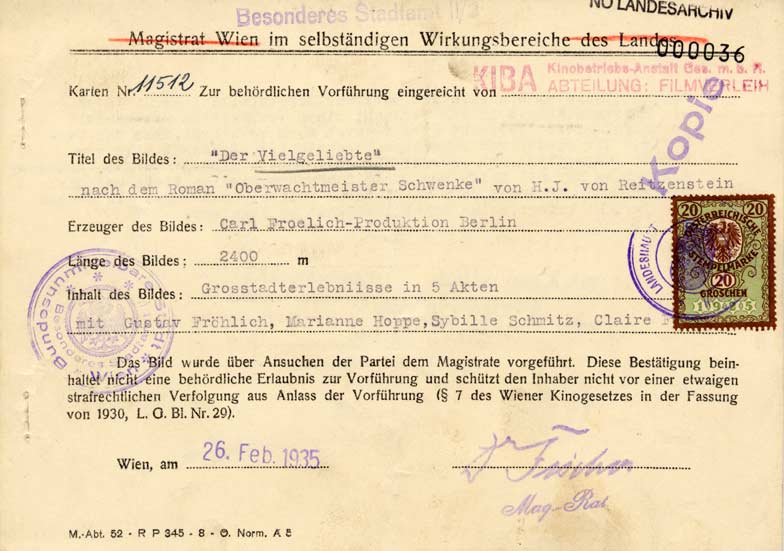 Besonderes Stadtamt II/3
NÖ LANDESARCHIV
Magistrat Wien im selbständigen Wirkungsbereiche des Landes
000036
Karten Nr. 11512 Zur behördlichen Vorführung eingereicht von
KIBA Kinobetriebs-Anstalt Ges. m. b. H.
ABTEILUNG: FILMVERLEIH
Kopie
Titel des Bildes: "Der Vielgeliebte"
nach dem Roman "Oberwachtmeister Schwenke" von H.J. von Reitzenstein
Erzeuger des Bildes: Carl Froelich-Produktion Berlin
Länge des Bildes: 2400 m
Inhalt des Bildes: Grosstadterlebniisse in 5 Akten
mit Gustav Fröhlich, Marianne Hoppe,Sybille Schmitz, Claire
20 20
ÖSTERREICHISCHE
STEMPELMARKE
20
GROSCHEN
LANDESHAUPT
Bundesunmittelbare
Besonderes Stadtamt
Wien
Das Bild wurde über Ansuchen der Partei dem Magistrate vorgeführt. Diese Bestätigung bein-
haltet nicht eine behördliche Erlaubnis zur Vorführung und schützt den Inhaber nicht vor einer etwaigen
strafrechtlichen Verfolgung aus Anlass der Vorführung (§ 7 des Wiener Kinogesetzes in der Fassung
von 1930, L. G. Bl. Nr. 29).
Wien, am 26. Feb. 1935
Dr Fischer
Mag-Rat
M.-Abt. 52 - R P 345 - 8 - Ö. Norm. A 5